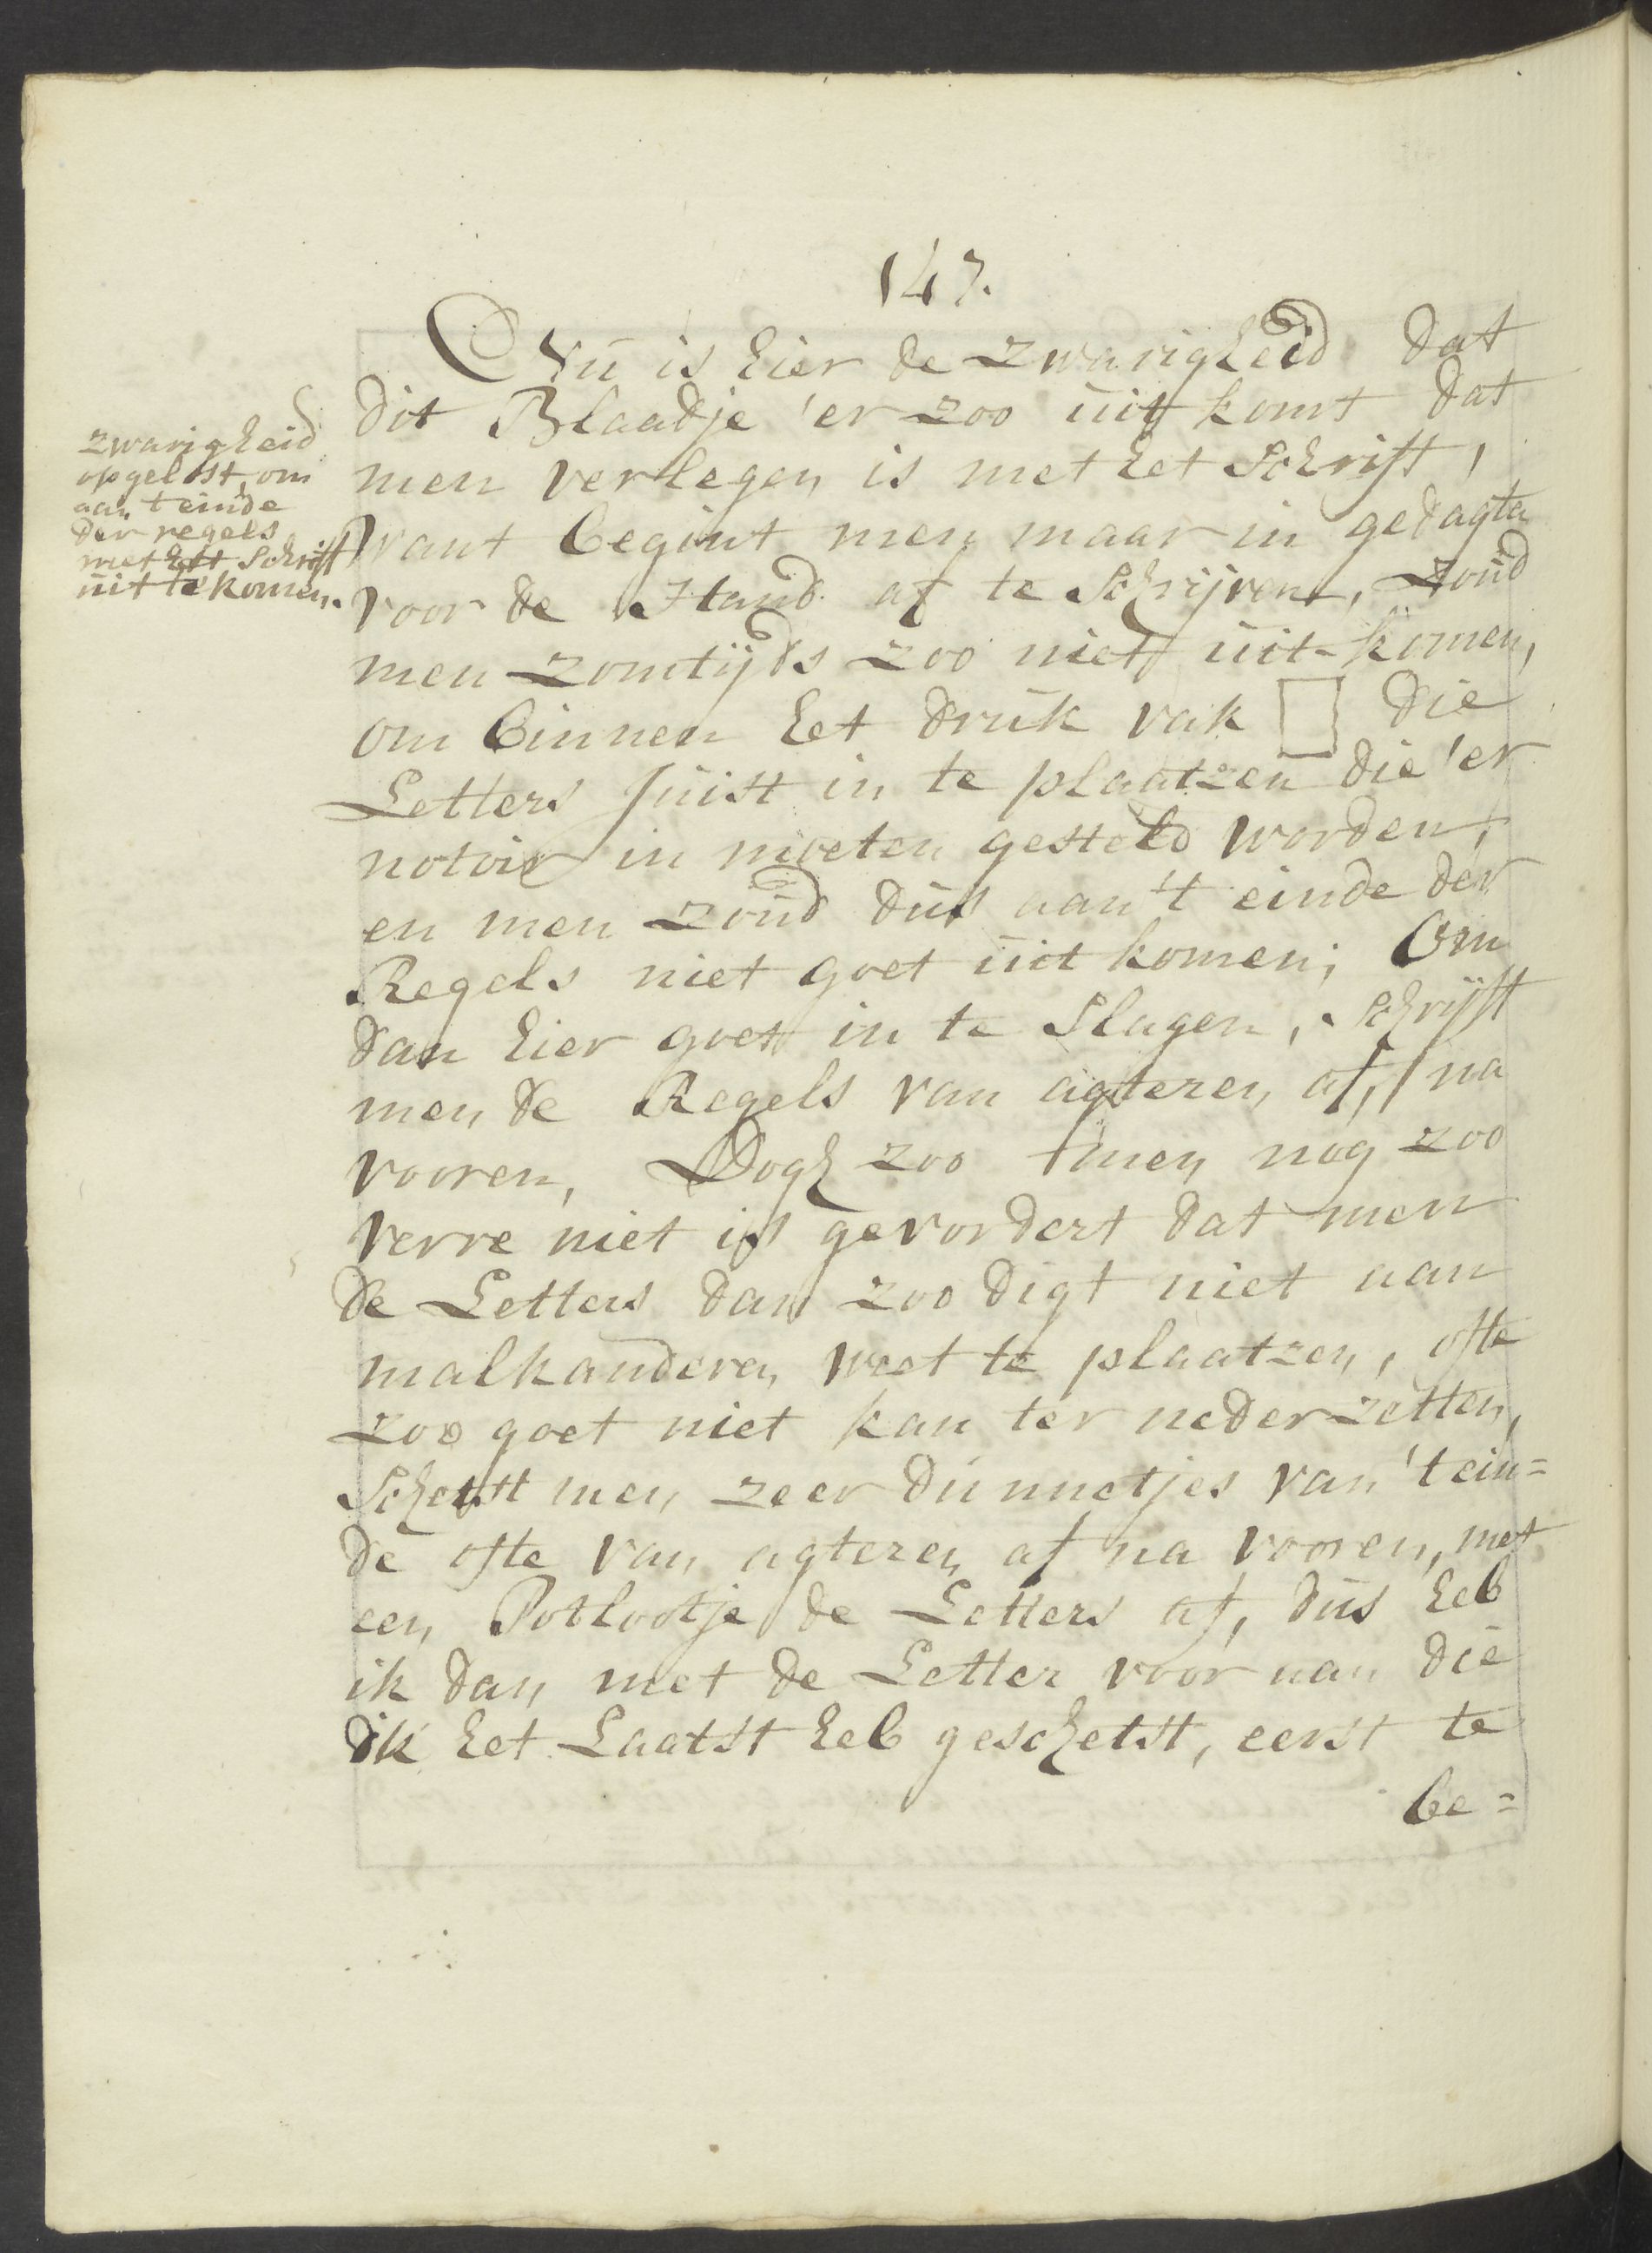 147.
Nu is hier de zwarigheid dat
dit Blaadje 'er zoo uit komt dat
men verlegen is met het Schrift,
want begint men maar in gedagte
voor de Hand af te Schrijven, zoud
men zomtijds zoo niet uit-komen,
om binnen het druk vak die
Letters Juist in te plaatzen die 'er
notoir in moeten gesteld worden,
en men zoud dus aan 't einde der
Regels niet goet uit komen; Om
dan hier goet in te Slagen, Schrijft
men de Regels van agteren af, na
vooren, Dogh zoo men nog zoo
verre niet is gevordert dat men
de Letters dan zoo digt niet aan
malkanderen weet te plaatzen, ofte
zoo goet niet kan ter neder zetten,
Schetst men zeer dunnetjes van 't ein=
de ofte van agteren af na vooren, met
een Potlootje de Letters af, dus heb
ik dan met de Letter voor aan die
ik het Laatst heb geschetst, eerst te
be=
zwarigheid
opgelost, om
aan 't einde
der regels
met het Schrift
uit te komen.